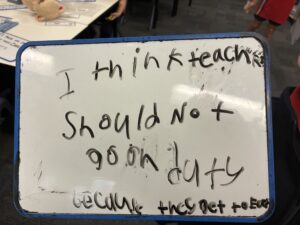 I think teachers
Should Not
go on
duty
because they get to Eat